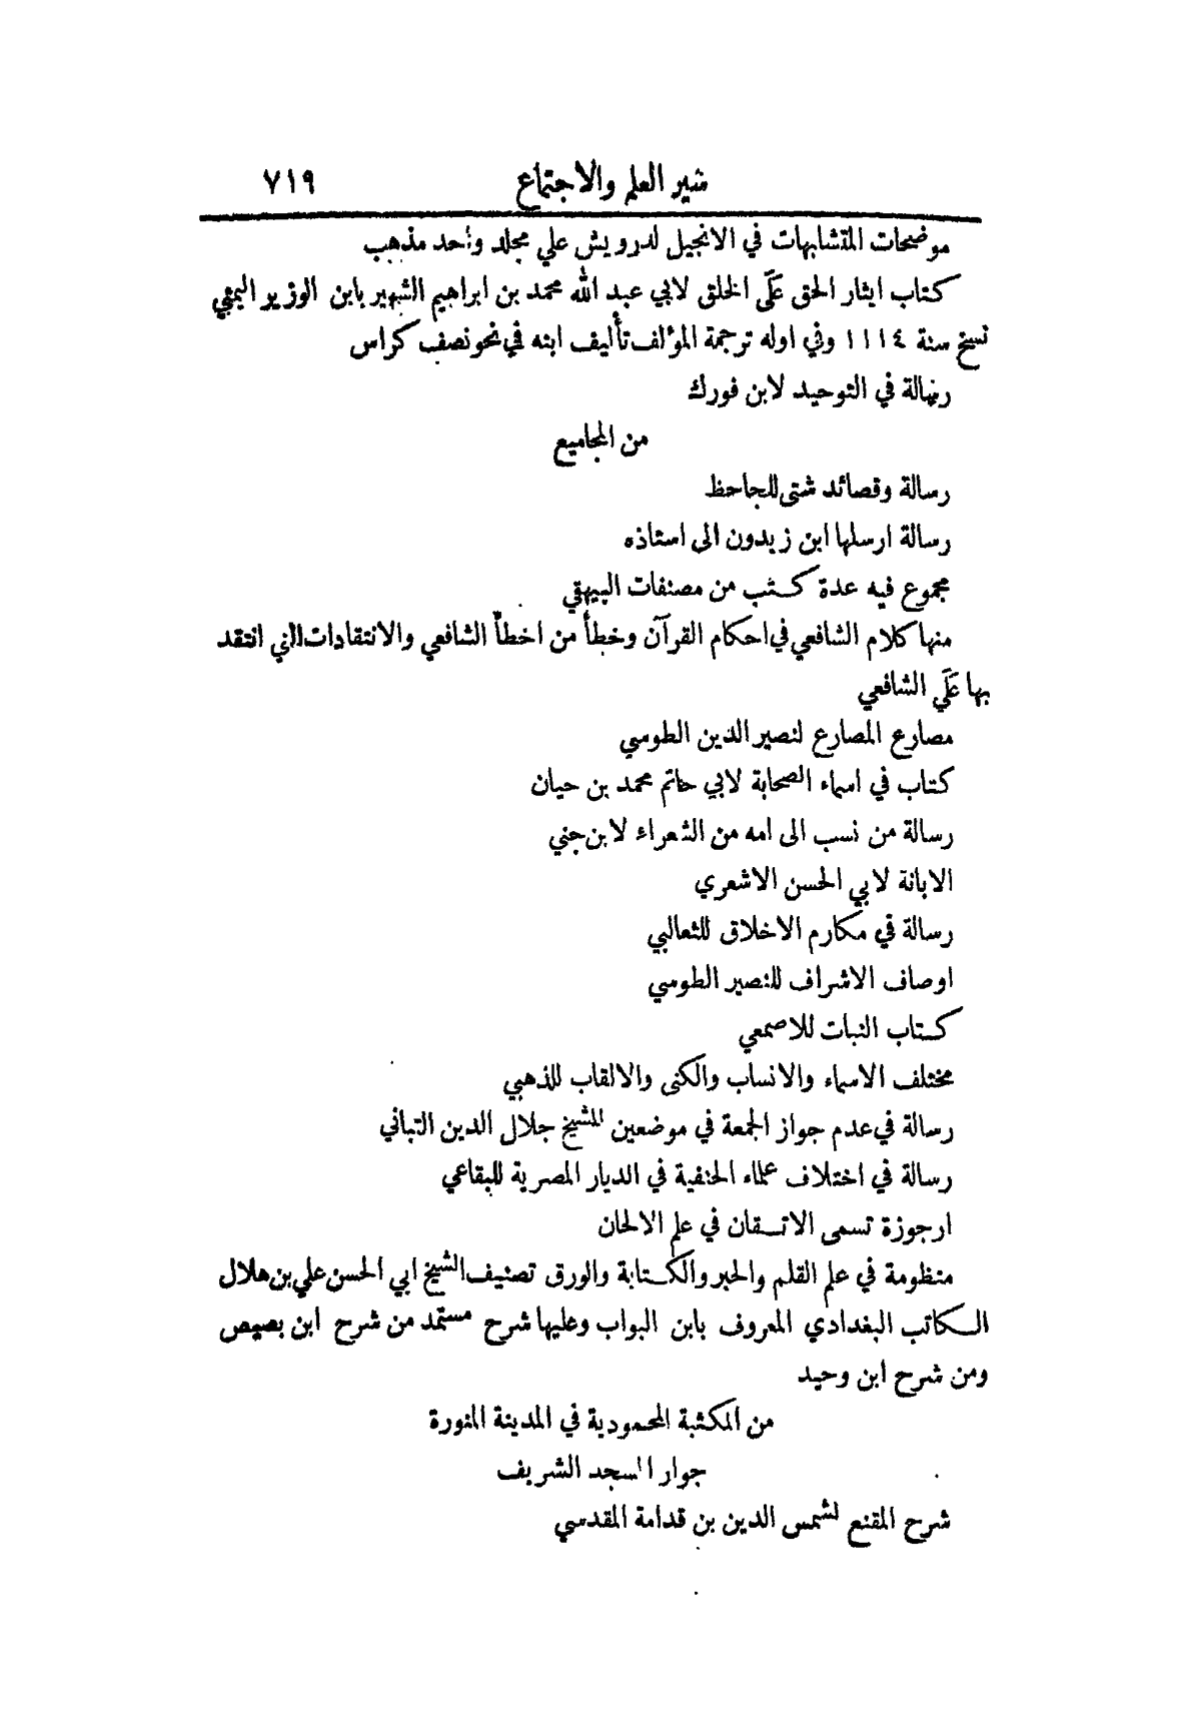 سير العلم والاجتماع ٧١٩
موضحات المتشابهات في الانجيل لدرويش علي مجلد واحد مذهب
كتاب ايثار الحق عَلَى الخلق لابي عبد الله محمد بن ابراهيم الشهير بابن الوزير اليمني
نسخ سنة ١١١٤ وفي اوله ترجمة المؤلف تأليف ابنه في نحو نصف كراس
رسالة في التوحيد لابن فورك
من المجاميع
رسالة وقصائد شتى للجاحظ
رسالة ارسلها ابن زيدون الى استاذه
مجموع فيه عدة كتب من مصنفات البيهقي
منها كلام الشافعي في احكام القرآن وخطأ من اخطأ الشافعي والانتقادات التي انتقد
بها عَلَى الشافعي
مصارع المصارع لنصير الدين الطوسي
كتاب في اسماء الصحابة لابي حاتم محمد بن حيان
رسالة من نسب الى امه من الشعراء لابن جني
الابانة لابي الحسن الاشعري
رسالة في مكارم الاخلاق للثعالبي
اوصاف الاشراف للنصير الطوسي
كتاب النبات للاصمعي
مختلف الاسماء والانساب والكنى والالقاب للذهبي
رسالة في عدم جواز الجمعة في موضعين للشيخ جلال الدين التباني
رسالة في اختلاف علماء الحنفية في الديار المصرية للبقاعي
ارجوزة تسمى الاتقان في علم الالحان
منظومة في علم القلم والحبر والكتابة والورق تصنيف الشيخ ابي الحسن علي بن هلال
الكاتب البغدادي المعروف بابن البواب وعليها شرح مستمد من شرح ابن بصيص
ومن شرح ابن وحيد
من المكتبة المحمودية في المدينة المنورة
جوار المسجد الشريف
شرح المقنع لشمس الدين بن قدامة المقدسي